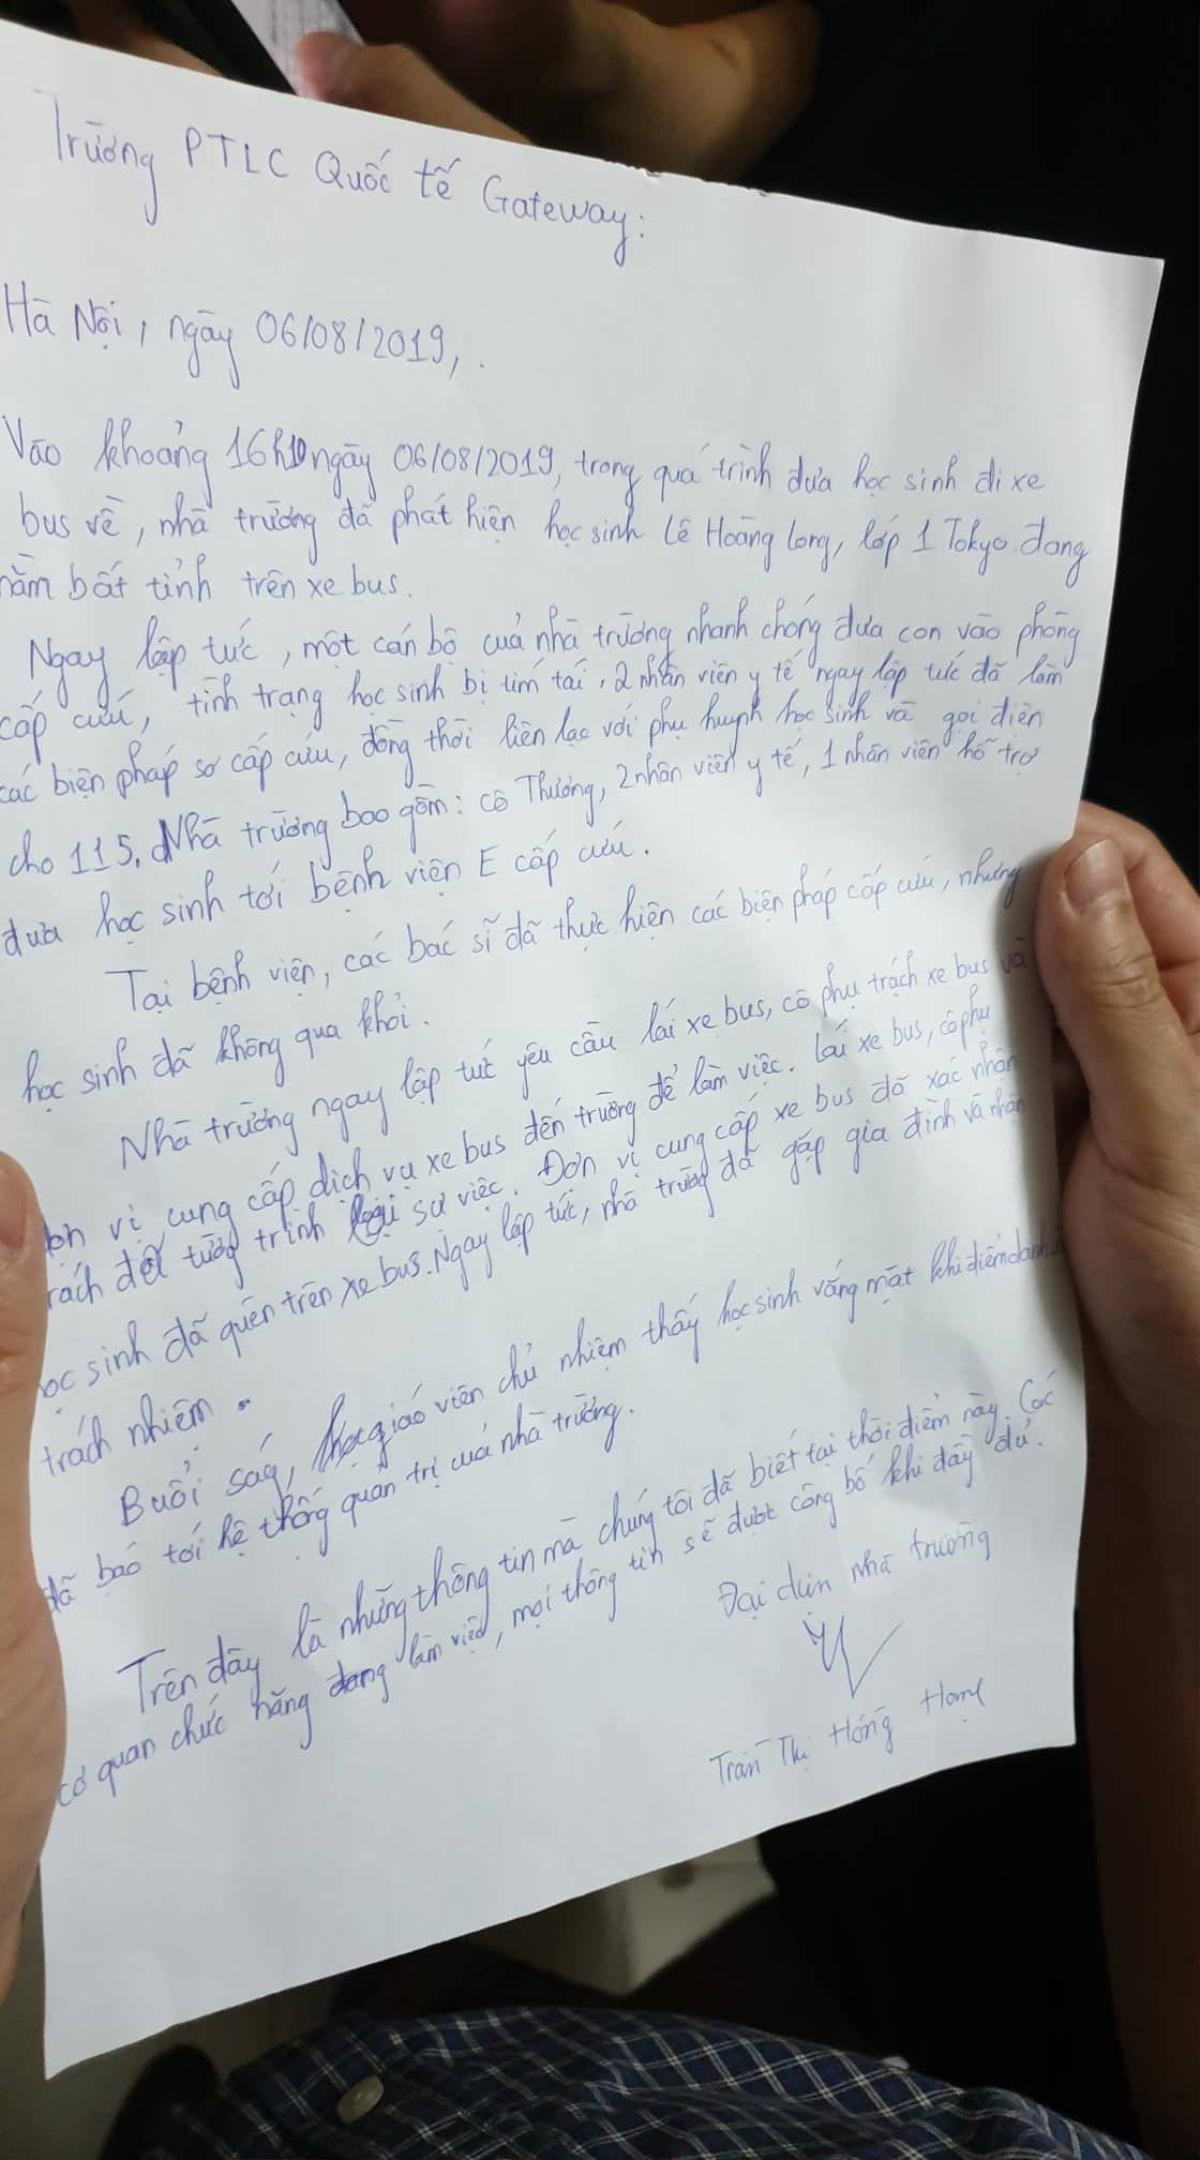 Trường PTLC Quốc tế Gateway:
Hà Nội, ngày 06/08/2019,.
Vào khoảng 16h10 ngày 06/08/2019, trong quá trình đưa học sinh đi xe
bus về, nhà trường đã phát hiện học sinh Lê Hoàng Long, lớp 1 Tokyo đang
nằm bất tỉnh trên xe bus.
Ngay lập tức, một cán bộ cuả nhà trường nhanh chóng đưa con vào phòng
cấp cứu, tình trạng học sinh bị tím tái, 2 nhân viên y tế ngay lập tức đã làm
các biện pháp sơ cấp cứu, đồng thời liên lạc với phụ huynh học sinh và gọi điện
cho 115. Nhà trường bao gồm: cô Thương, 2 nhân viên y tế, 1 nhân viên hỗ trợ
đưa học sinh tới bệnh viện E cấp cứu.
Tại bệnh viện, các bác sĩ đã thực hiện các biện pháp cấp cứu, nhưng
học sinh đã không qua khỏi.
Nhà trường ngay lập tức yêu cầu lái xe bus, cô phụ trách xe bus và
vị cung cấp dịch vụ xe bus đến trường để làm việc. Lái xe bus, cô phụ
trách để tường trình lại sự việc. Đơn vị cung cấp xe bus đã xác nhận
học sinh đã quên trên xe bus. Ngay lập tức, nhà trường đã gặp gia đình và nhận
trách nhiệm.
Buổi ság, giáo viên chủ nhiệm thấy học sinh vắng mặt khi điểm danh
đã báo tới hệ thống quản trị cuả nhà trường.
Trên đây là những thông tin mà chúng tôi đã biết tại thời điểm này. Các
cơ quan chức năng đang làm việc, mọi thông tin sẽ được công bố khi đầy đủ.
Đại diện nhà trường
Trần Thị Hồng Hạnh